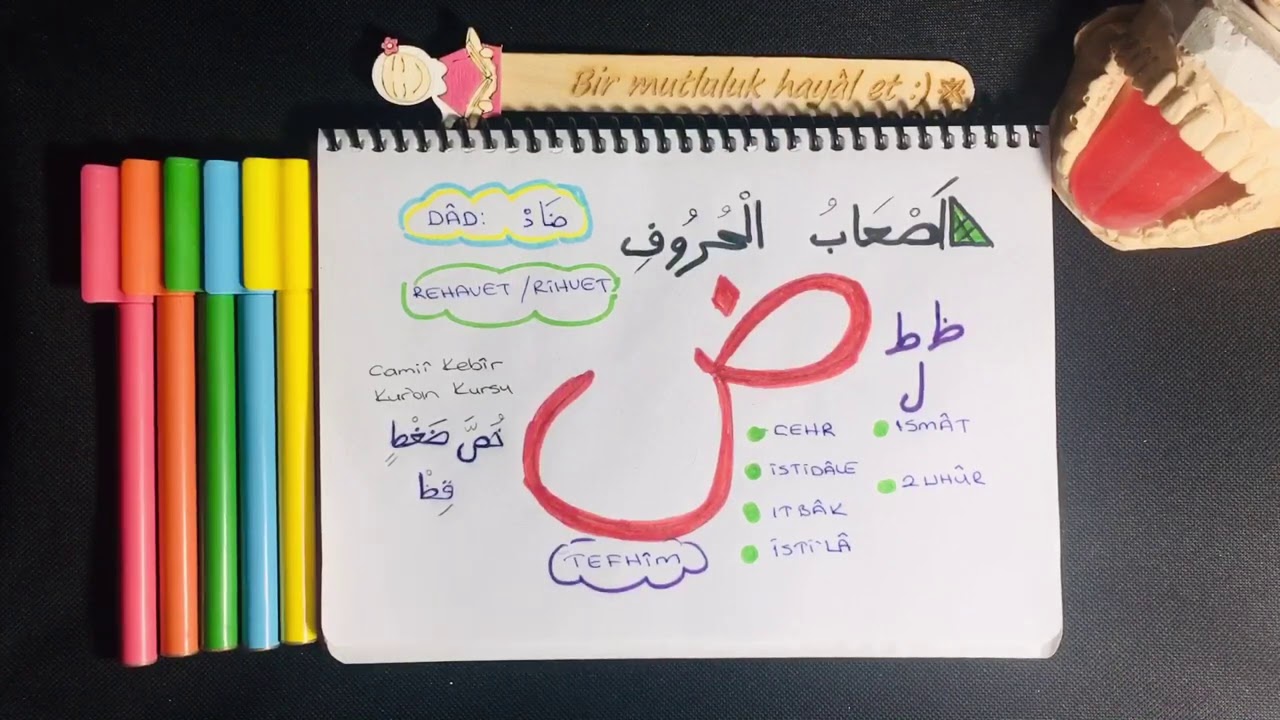 Bir mutluluk hayâl et :)
DÂD: ضَادْ
اَصْعَابُ الْحُرُوفِ
REHAVET / RİHVET
ض
ظ ط
ل
Camiî Kebîr
Kur'ân Kursu
خُصَّ ضَغْطٍ
قِظْ
CEHR
İSTİDÂLE
ITBÂK
İSTİ'LÂ
ISMÂT
ZUHÛR
TEFHÎM